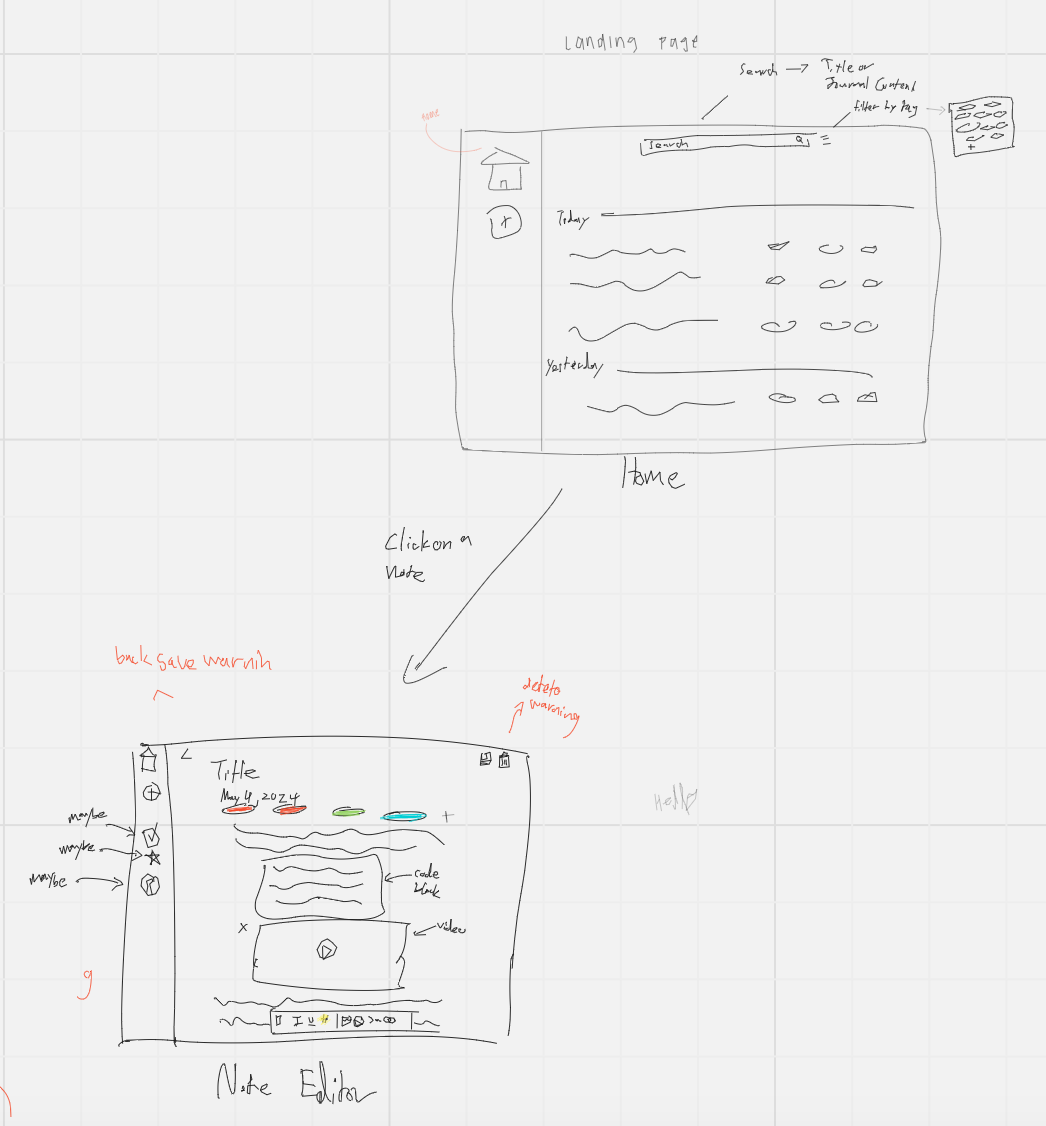 Landing page
Search → Title or
Journal Content
filter by tag
home
Search
Today
Yesterday
Home
Click on a
Note
back save warnin
delete
warning
Title
May 4, 2024
maybe
maybe
maybe
code
block
x
video
Hello
g
I U
Note Editor